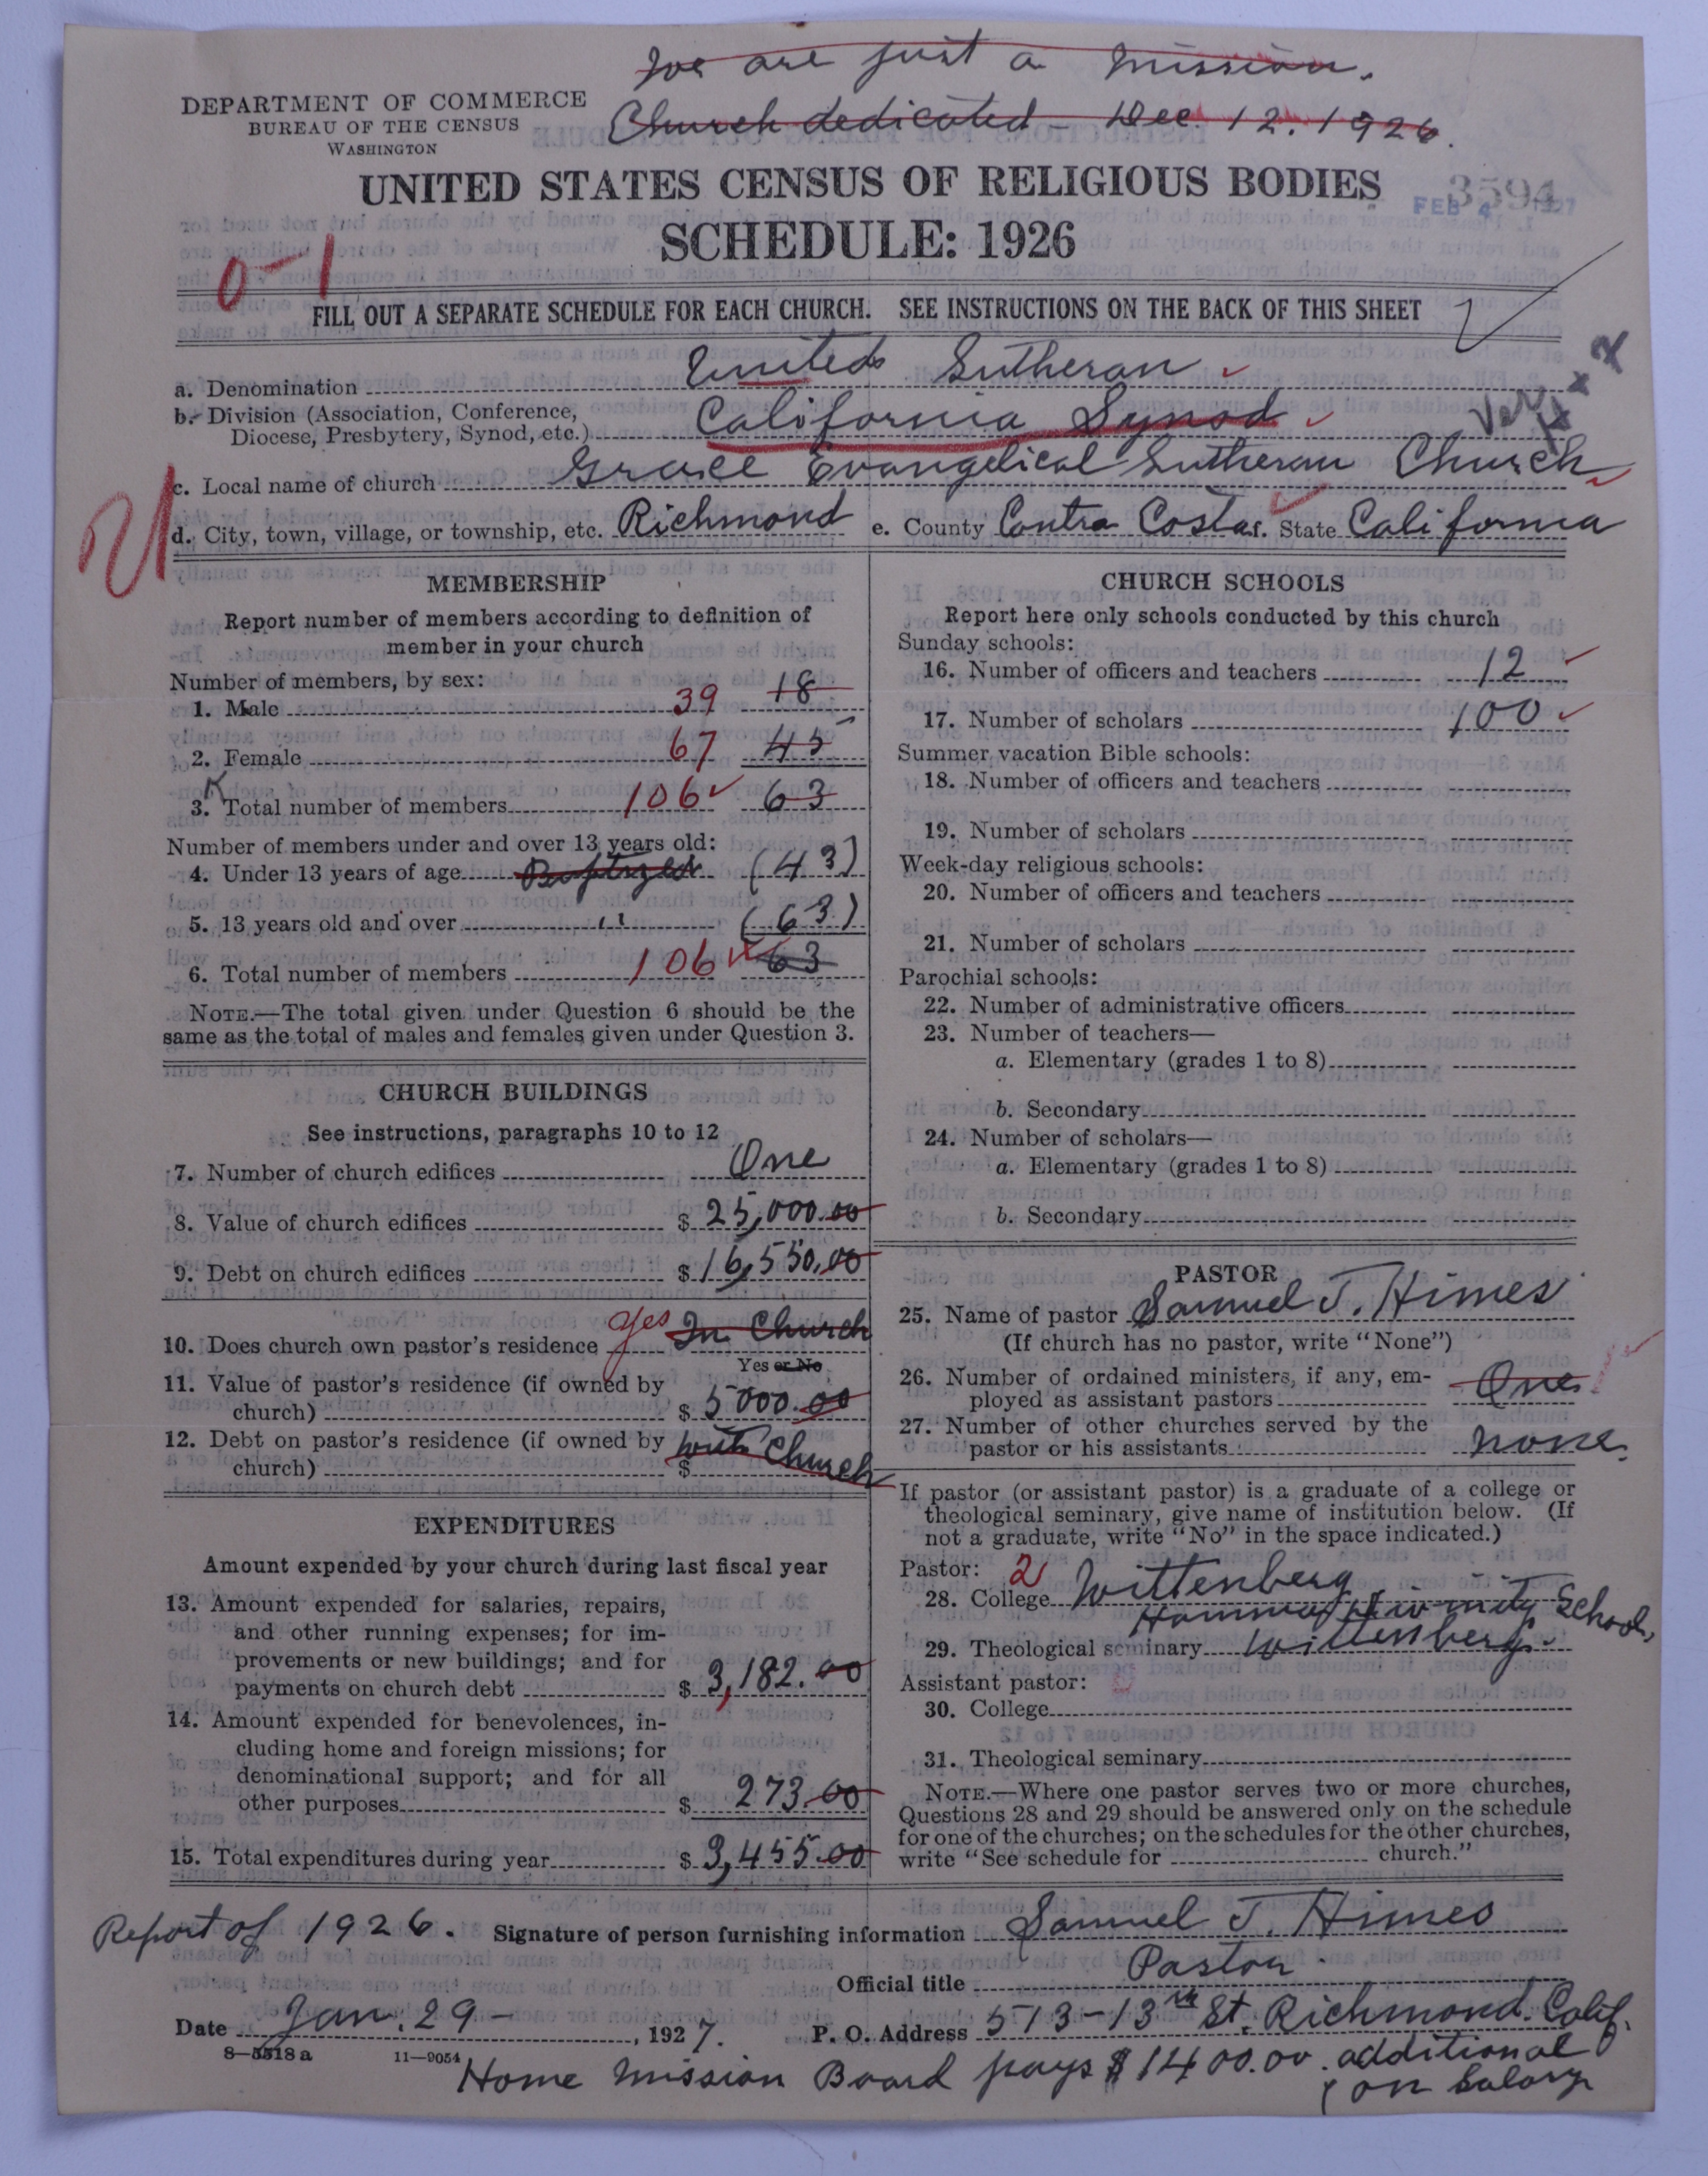 We are just a mission.
Church dedicated - Dec. 12. 1926.
DEPARTMENT OF COMMERCE
BUREAU OF THE CENSUS
WASHINGTON
UNITED STATES CENSUS OF RELIGIOUS BODIES
3594
FEB 4 1927
SCHEDULE: 1926
0-1
FILL OUT A SEPARATE SCHEDULE FOR EACH CHURCH. SEE INSTRUCTIONS ON THE BACK OF THIS SHEET
a. Denomination United Lutheran
b. Division (Association, Conference,
Diocese, Presbytery, Synod, etc.) California Synod
c. Local name of church Grace Evangelical Lutheran Church
d. City, town, village, or township, etc. Richmond e. County Contra Costa f. State California
MEMBERSHIP
Report number of members according to definition of
member in your church
Number of members, by sex:
1. Male 39 18
2. Female 67 45
3. Total number of members 106 63
Number of members under and over 13 years old:
4. Under 13 years of age Baptized (43)
5. 13 years old and over " (63)
6. Total number of members 106 63
NOTE.—The total given under Question 6 should be the
same as the total of males and females given under Question 3.
CHURCH BUILDINGS
See instructions, paragraphs 10 to 12
7. Number of church edifices One
8. Value of church edifices $ 25,000.00
9. Debt on church edifices $ 16,550.00
10. Does church own pastor's residence yes In Church
Yes or No
11. Value of pastor's residence (if owned by
church) $ 5000.00
12. Debt on pastor's residence (if owned by
church) $ with Church
EXPENDITURES
Amount expended by your church during last fiscal year
13. Amount expended for salaries, repairs,
and other running expenses; for im-
provements or new buildings; and for
payments on church debt $ 3,182.00
14. Amount expended for benevolences, in-
cluding home and foreign missions; for
denominational support; and for all
other purposes $ 273.00
15. Total expenditures during year $ 3,455.00
CHURCH SCHOOLS
Report here only schools conducted by this church
Sunday schools:
16. Number of officers and teachers 12
17. Number of scholars 100
Summer vacation Bible schools:
18. Number of officers and teachers
19. Number of scholars
Week-day religious schools:
20. Number of officers and teachers
21. Number of scholars
Parochial schools:
22. Number of administrative officers
23. Number of teachers—
a. Elementary (grades 1 to 8)
b. Secondary
24. Number of scholars—
a. Elementary (grades 1 to 8)
b. Secondary
PASTOR
25. Name of pastor Samuel J. Himes
(If church has no pastor, write "None")
26. Number of ordained ministers, if any, em-
ployed as assistant pastors One
27. Number of other churches served by the
pastor or his assistants none.
If pastor (or assistant pastor) is a graduate of a college or
theological seminary, give name of institution below. (If
not a graduate, write "No" in the space indicated.)
Pastor: 2
28. College Wittenberg
Hamma Divinity School,
29. Theological seminary Wittenberg.
Assistant pastor:
30. College
31. Theological seminary
NOTE.—Where one pastor serves two or more churches,
Questions 28 and 29 should be answered only on the schedule
for one of the churches; on the schedules for the other churches,
write "See schedule for church."
Report of 1926. Signature of person furnishing information Samuel J. Himes
Official title Pastor
Date Jan. 29 - , 1927. P. O. Address 513-13th St. Richmond. Calif.
8—5518a 11—9054
Home Mission Board pays $1400.00 additional
on Salary